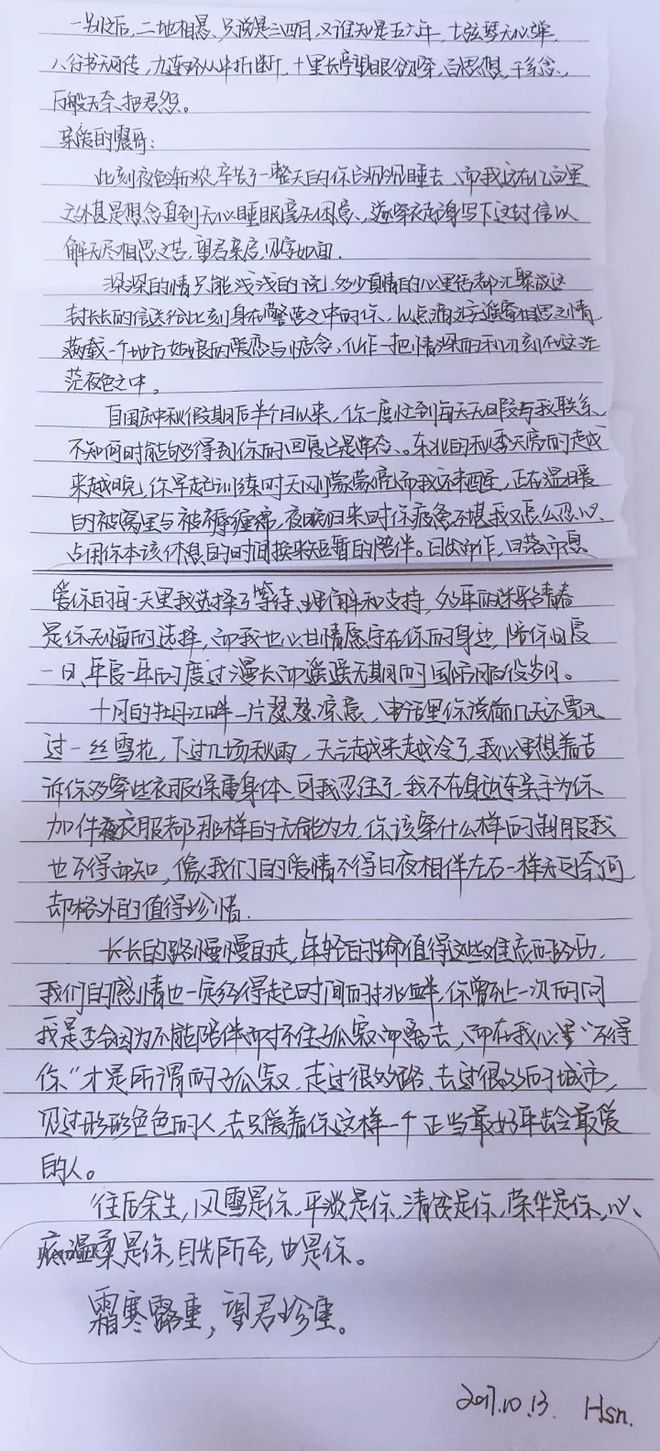 一别之后,二地相悬,只说是三四月,又谁知是五六年,七弦琴无心弹,
八行书无可传,九连环从中折断,十里长亭望眼欲穿,百思想,千系念,
万般无奈把君怨。
亲爱的震哥:
此刻夜色渐浓,辛苦了一整天的你已沉沉睡去,而我这在几百里
之外甚是想念直到无心睡眠毫无困意、遂穿衣起身写下这封信以
解无尽相思之苦,望君亲启,见字如面.
深深的情只能浅浅的说,多少真情的心里话都汇聚成这
封长长的信送给此刻身在警营之中的你、以点滴文字遥寄相思之情
满载一个地方姑娘的爱恋与惦念,化作一把情深的利刃刻在这茫
茫夜色之中。
自国庆中秋假期后半个月以来,你一度忙到每天无暇与我联系、
不知何时能够得到你的回复已是常态。东北的秋季天亮的越
来越晚,你早起训练时天刚蒙蒙亮而我还未醒,正在温暖
的被窝里与被褥缠绵,夜晚归来时你疲惫不堪我又怎么忍心
占用你本该休息的时间换来短暂的陪伴。日出而作,日落而息
爱你的每一天里我选择了等待、理解和支持,多年的迷彩青春
是你无悔的选择,而我也心甘情愿守在你的身边,陪你日复
一日、年复一年的度过漫长而遥遥无期的国防服役岁月。
十月的牡丹江畔一片瑟瑟凉意,电话里你说前几天还飘
过一丝雪花,下过几场秋雨,天气越来越冷了,我心里想着告
诉你多穿些衣服保重身体、可我忍住了,我不在身边连亲手为你
加件衣服都那样的无能为力,你该穿什么样的制服我
也不得而知,像我们的爱情不得日夜相伴左右一样无可奈何
却格外的值得珍惜.
长长的路慢慢的走,年轻的生命值得这些难忘的经历,
我们的感情也一定经得起时间的挑衅,你曾不止一次的问
我是否会因为不能陪伴而耐不住孤寂而离去,而在我心里"不得
你"才是所谓的孤寂,走过很多路、去过很多的城市,
见过形形色色的人,去只爱着你这样一个正当最好年龄最爱
的人。
往后余生,风雪是你,平淡是你,清贫是你,荣华是你,心
底温柔是你,目光所至,也是你。
霜寒露重,望君珍重。
2017.10.13. Hsn.